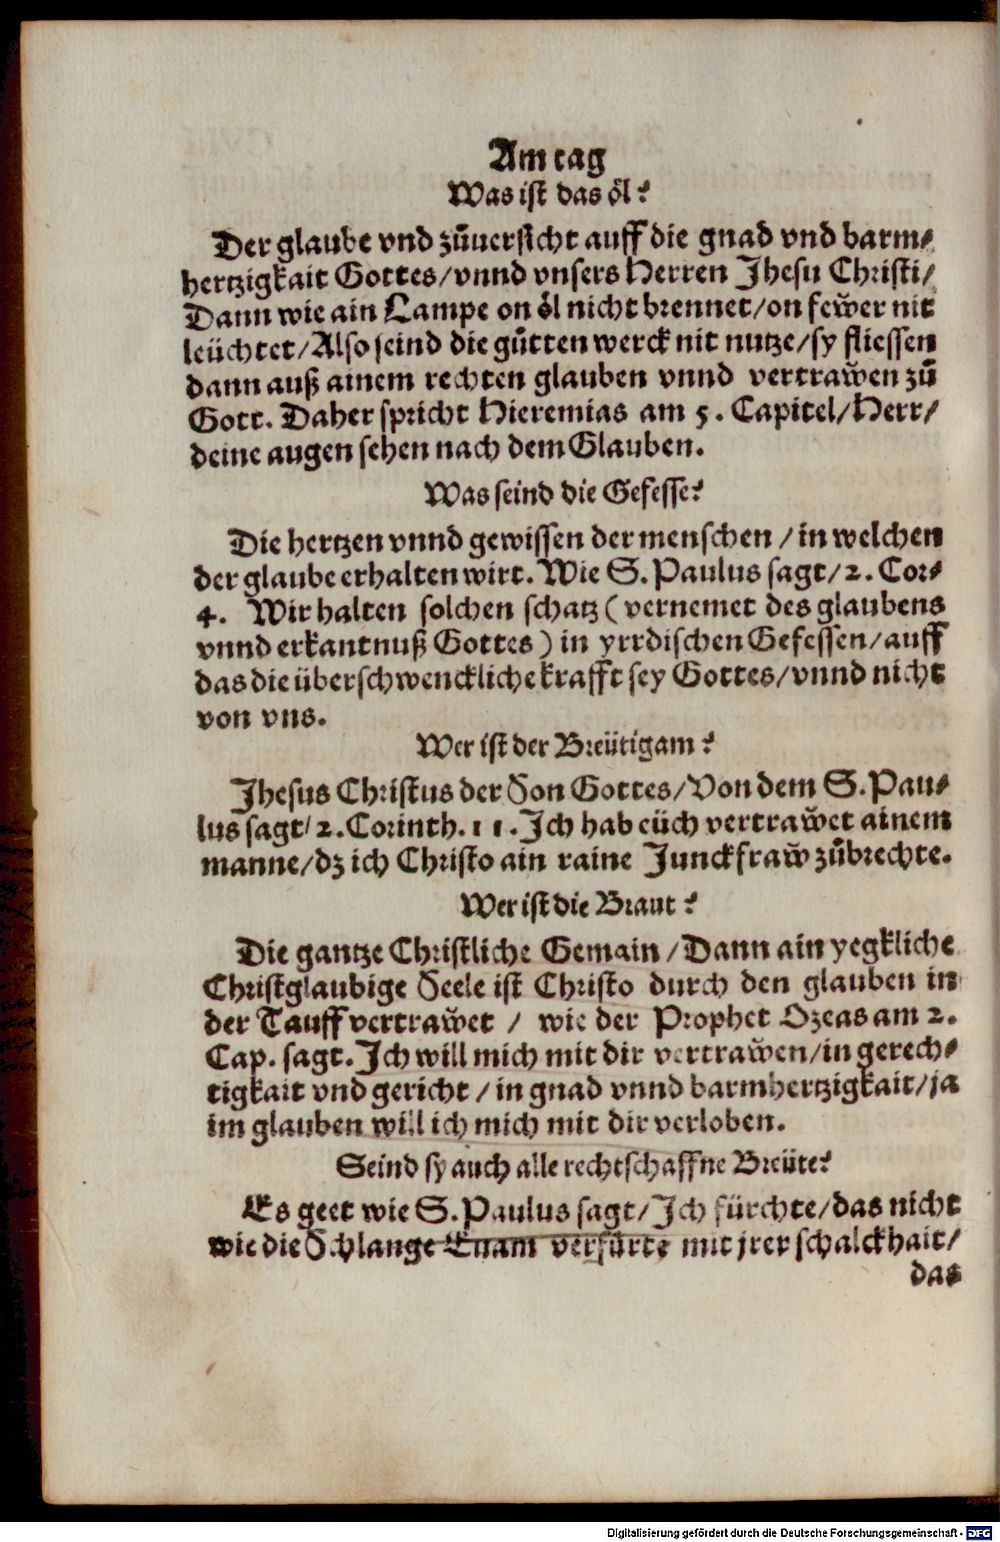 Am tag
Was ist das öl?
Der glaube vnd zůuersicht auff die gnad vnd barm-
hertzigkait Gottes/vnnd vnsers Herren Jhesu Christi/
Dann wie ain Lampe on öl nicht brennet/on fewͤr nit
leüchtet/Also seind die gůtten werck nit nutze/sy fliessen
dann auß ainem rechten glauben vnnd vertrawͤen zů
Gott. Daher spricht Hieremias am 5. Capitel/Herr/
deine augen sehen nach dem Glauben.
Was seind die Gefesse?
Die hertzen vnnd gewissen der menschen /in welchen
der glaube erhalten wirt. Wie S. Paulus sagt/2. Cor-
4. Wir halten solchen schatz (vernemet des glaubens
vnnd erkantnuß Gottes) in yrrdischen Gefessen/auff
das die überschwenckliche krafft sey Gottes/vnnd nicht
von vns.
Wer ist der Breütigam?
Jhesus Christus der Son Gottes/Von dem S. Pau-
lus sagt/2. Corinth. 11. Jch hab eüch vertrawͤet ainem
manne/dz ich Christo ain raine Junckfrawͤ zůbrechte.
Wer ist die Braut?
Die gantze Christliche Gemain /Dann ain yegkliche
Christglaubige Seele ist Christo durch den glauben in
der Tauff vertrawͤet / wie der Prophet Ozeas am 2.
Cap. sagt. Jch will mich mit dir vertrawͤen/in gerech-
tigkait vnd gericht /in gnad vnnd barmhertzigkait/ja
im glauben will ich mich mit dir verloben.
Seind sy auch alle rechtschaffne Breüte?
Es geet wie S. Paulus sagt/Jch fürchte/das nicht
wie die Schlange Euam verfürte mit jrer schalckhait/
das
Digitalisierung gefördert durch die Deutsche Forschungsgemeinschaft - DFG